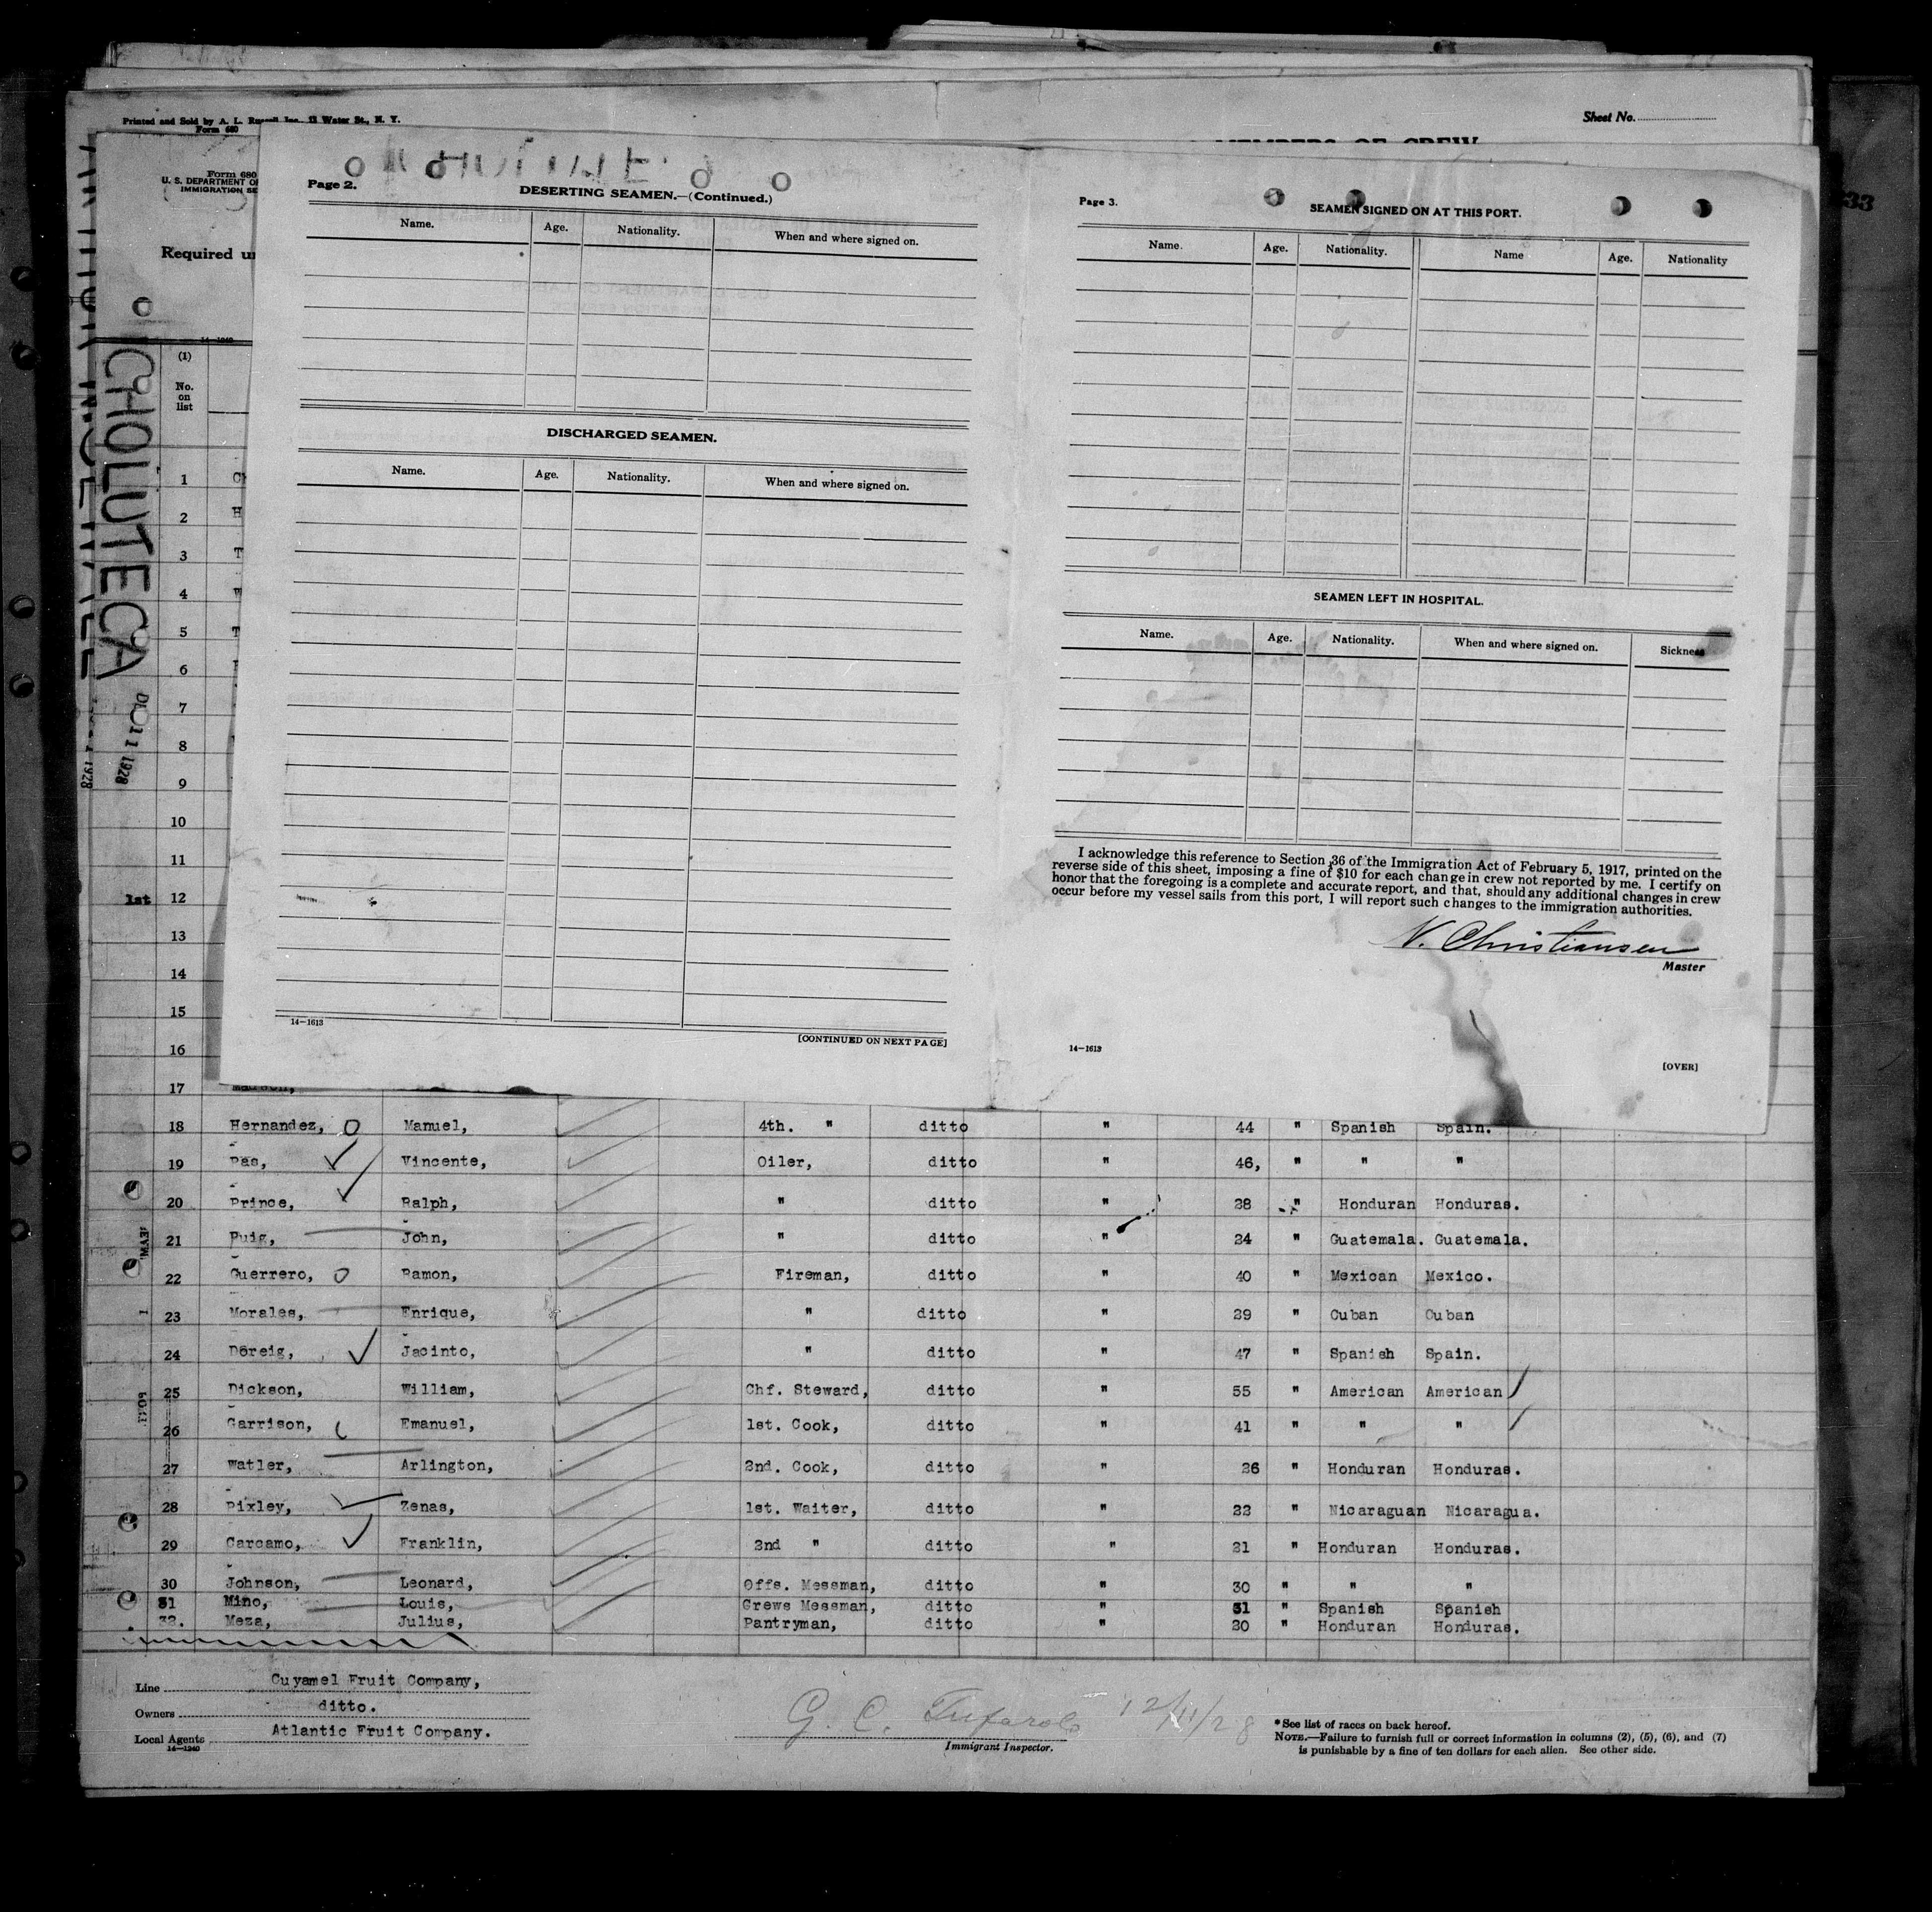 Printed and Sold by A. L. Russell Inc., 12 Water St., N. Y.
Form 680
Sheet No.
MEMBERS OF CREW
Form 680
U. S. DEPARTMENT OF
IMMIGRATION SE
Required un
14-1240
(1)
No.
on
list
CHOLUTECA
DEC 11 1928
1928
Page 2.
DESERTING SEAMEN.—(Continued.)
Name. Age. Nationality. When and where signed on.
DISCHARGED SEAMEN.
Name. Age. Nationality. When and where signed on.
14-1613
[CONTINUED ON NEXT PAGE]
Page 3.
SEAMEN SIGNED ON AT THIS PORT.
Name. Age. Nationality. Name Age. Nationality
SEAMEN LEFT IN HOSPITAL.
Name. Age. Nationality. When and where signed on. Sickness
I acknowledge this reference to Section 36 of the Immigration Act of February 5, 1917, printed on the
reverse side of this sheet, imposing a fine of $10 for each change in crew not reported by me. I certify on
honor that the foregoing is a complete and accurate report, and that, should any additional changes in crew
occur before my vessel sails from this port, I will report such changes to the immigration authorities.
N. Christiansen
Master
14-1613
[OVER]
1
2 H
3 T
4 W
5 T
6
7
8
9
10
11
1st 12
13
14
15
16
17
18 Hernandez, Manuel, 4th. " ditto " 44 " Spanish Spain.
19 Pas, Vincente, Oiler, ditto " 46, " " "
20 Prince, Ralph, " ditto " 28 " Honduran Honduras.
21 Puig, John, " ditto " 24 " Guatemala. Guatemala.
22 Guerrero, Ramon, Fireman, ditto " 40 " Mexican Mexico.
23 Morales, Enrique, " ditto " 29 " Cuban Cuban
24 Doreig, Jacinto, " ditto " 47 " Spanish Spain.
25 Dickson, William, Chf. Steward, ditto " 55 " American American
26 Garrison, Emanuel, 1st. Cook, ditto " 41 " " "
27 Watler, Arlington, 2nd. Cook, ditto " 26 " Honduran Honduras.
28 Pixley, Zenas, 1st. Waiter, ditto " 22 " Nicaraguan Nicaragua.
29 Carcamo, Franklin, 2nd " ditto " 21 " Honduran Honduras.
30 Johnson, Leonard, Offs. Messman, ditto " 30 " " "
31 Mino, Louis, Crews Messman, ditto " 31 " Spanish Spanish
32. Meza, Julius, Pantryman, ditto " 20 " Honduran Honduras.
Line Cuyamel Fruit Company,
Owners ditto.
Local Agents Atlantic Fruit Company.
14-1240
G. C. 12/11/28
Immigrant Inspector.
*See list of races on back hereof.
NOTE.—Failure to furnish full or correct information in columns (2), (5), (6), and (7)
is punishable by a fine of ten dollars for each alien. See other side.